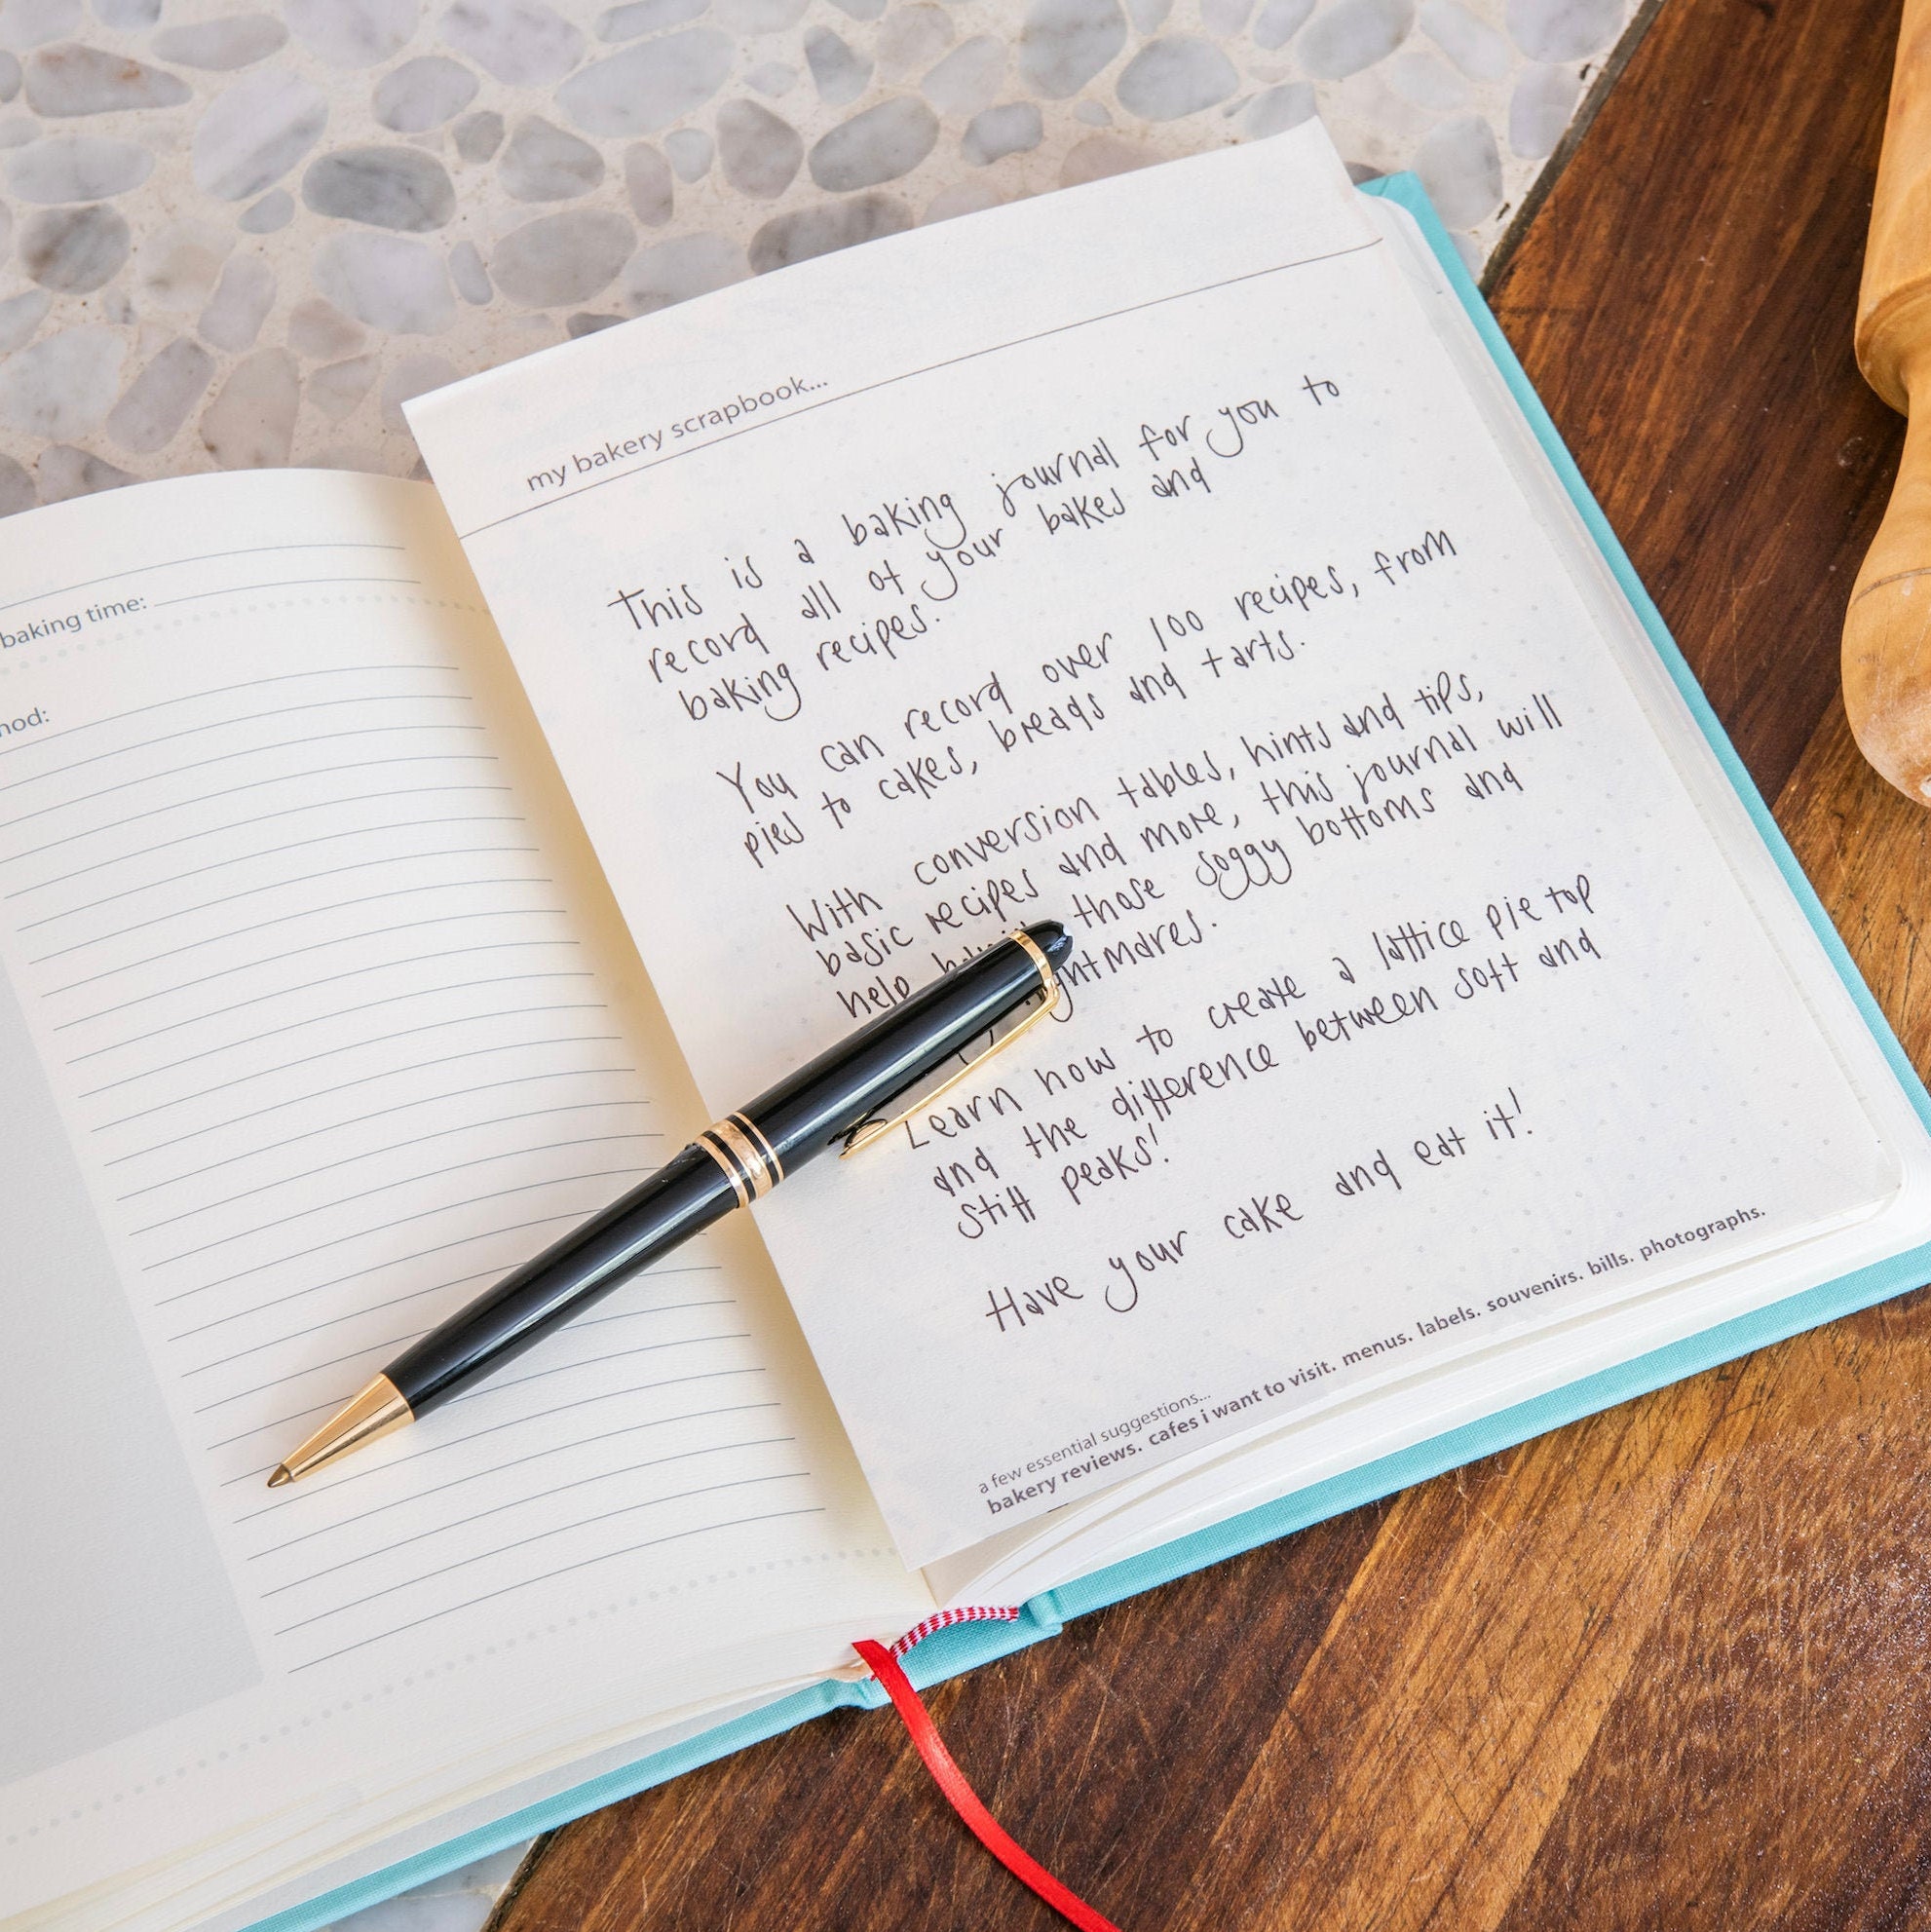 baking time:
my bakery scrapbook...
This is a baking journal for you to
record all of your bakes and
baking recipes.
You can record over 100 recipes, from
pies to cakes, breads and tarts.
With conversion tables, hints and tips,
basic recipes and more, this journal will
help those soggy bottoms and
Learn how to create a lattice pie top
and the difference between soft and
stiff peaks!
Have your cake and eat it!
a few essential suggestions...
bakery reviews. cafes i want to visit. menus. labels. souvenirs. bills. photographs.